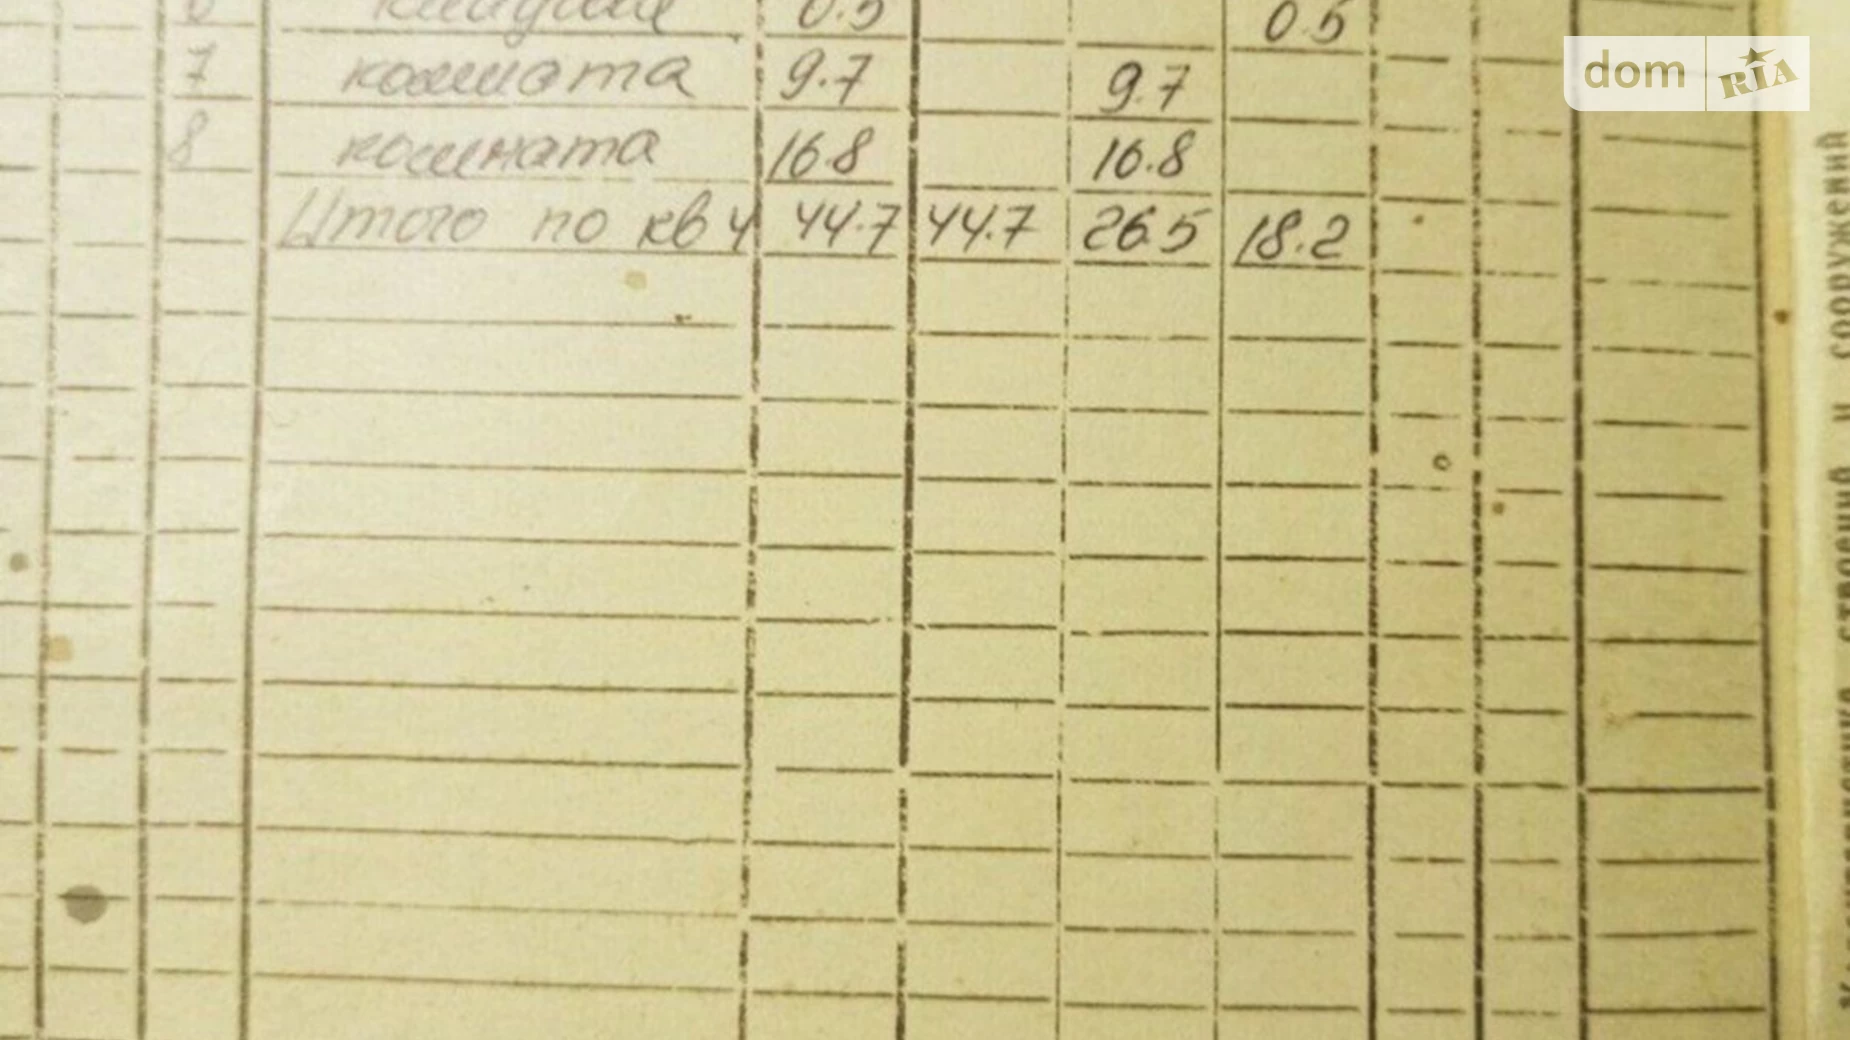 6 кладовая 0.5 0.5
7 комната 9.7 9.7
8 комната 16.8 16.8
Итого по кв 4 44.7 44.7 26.5 18.2
dom RIA
строений и сооружений